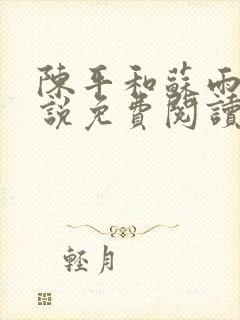 陳平和蘇雨
說免費閱讀
輕月